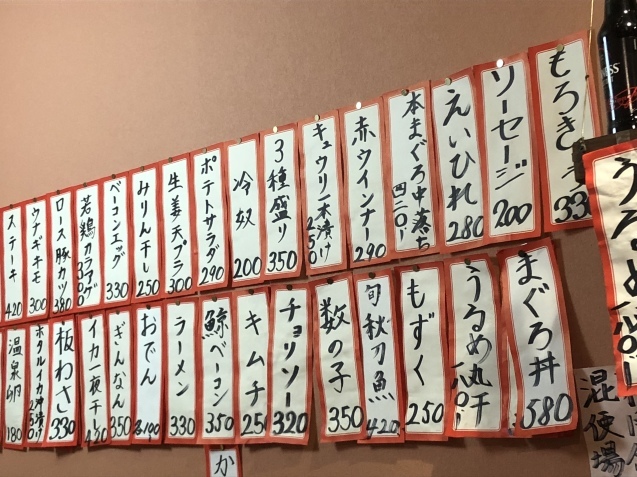 もろきゅう 33
ソーセージ 200
えいひれ 280
本まぐろ中落ち 四二〇ー
赤ウインナー 290
キュウリ一本漬け 250
3種盛り 350
冷奴 200
ポテトサラダ 290
生姜天プラ 300
みりん干し 250
ベーコンエッグ 330
若鶏カラアゲ 300
ロース豚カツ 380
ウナギキモ 300
ステーキ 420
まぐろ丼 580
うるめ丸干 一八〇ー
もずく 250
旬秋刀魚 420
数の子 350
チョリソー 320
キムチ 25
鯨ベーコン 350
ラーメン 330
おでん
ぎんなん 350
イカ一夜干し
板わさ 330
ホタルイカ沖漬け
温泉卵 180
か
混便場